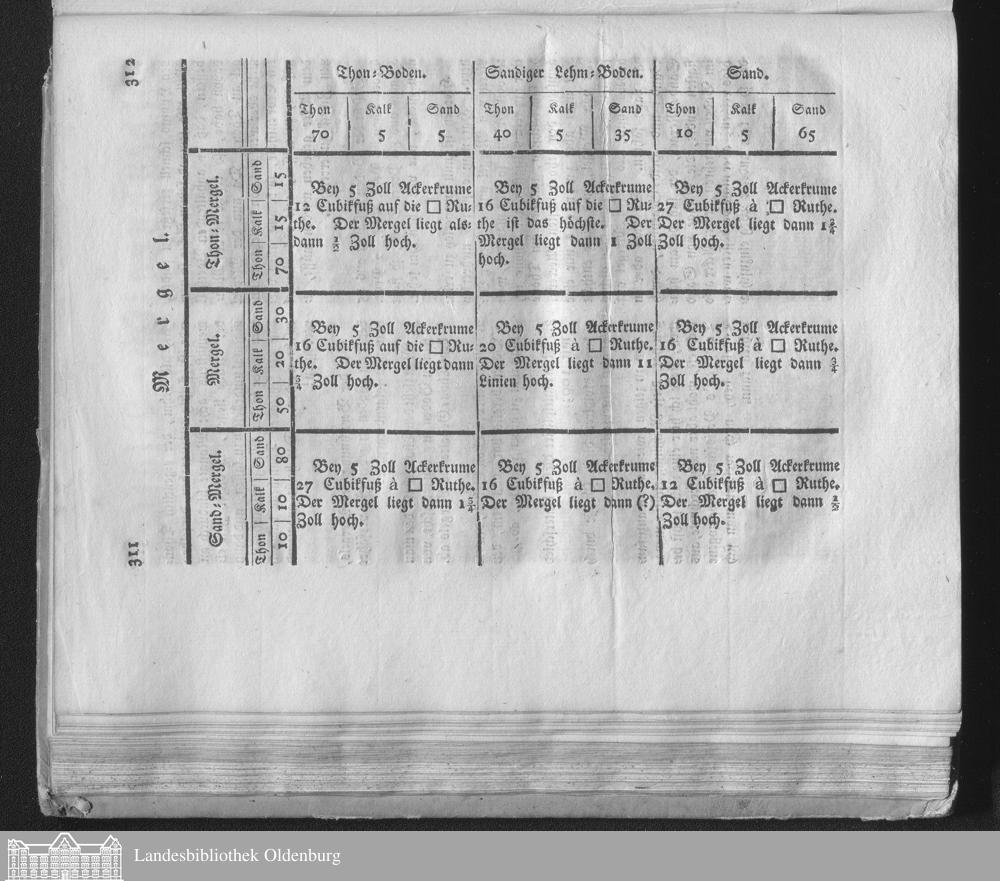 312
311
Mergel.
Thon-Boden.
Thon Kalk Sand
70 5 5
Sandiger Lehm-Boden.
Thon Kalk Sand
40 5 35
Sand.
Thon Kalk Sand
10 5 65
Thon-Mergel.
Thon Kalk Sand
70 15 15
Bey 5 Zoll Ackerkrume
12 Cubikfuß auf die □ Ru-
the. Der Mergel liegt als-
dann ½ Zoll hoch.
Bey 5 Zoll Ackerkrume
16 Cubikfuß auf die □ Ru-
the ist das höchste. Der
Mergel liegt dann 1 Zoll
hoch.
Bey 5 Zoll Ackerkrume
27 Cubikfuß à □ Ruthe.
Der Mergel liegt dann 1¾
Zoll hoch.
Mergel.
Thon Kalk Sand
50 20 30
Bey 5 Zoll Ackerkrume
16 Cubikfuß auf die □ Ru-
the. Der Mergel liegt dann
¾ Zoll hoch.
Bey 5 Zoll Ackerkrume
20 Cubikfuß à □ Ruthe.
Der Mergel liegt dann 11
Linien hoch.
Bey 5 Zoll Ackerkrume
16 Cubikfuß à □ Ruthe.
Der Mergel liegt dann ¾
Zoll hoch.
Sand-Mergel.
Thon Kalk Sand
10 10 80
Bey 5 Zoll Ackerkrume
27 Cubikfuß à □ Ruthe.
Der Mergel liegt dann 1¾
Zoll hoch.
Bey 5 Zoll Ackerkrume
16 Cubikfuß à □ Ruthe.
Der Mergel liegt dann (?)
Bey 5 Zoll Ackerkrume
12 Cubikfuß à □ Ruthe.
Der Mergel liegt dann ½
Zoll hoch.
Landesbibliothek Oldenburg